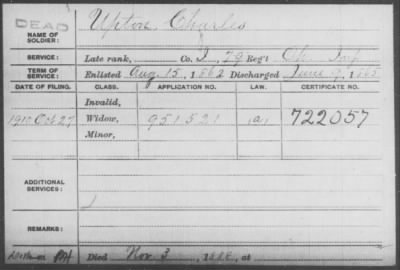 DEAD
NAME OF SOLDIER: Upton, Charles
SERVICE: Late rank, Co. I, 79 Reg't Oh. Inf.
TERM OF SERVICE: Enlisted Aug. 15, 1862 Discharged June 9, 1865
DATE OF FILING. CLASS. APPLICATION NO. LAW. CERTIFICATE NO.
Invalid,
1910 Oct 27 Widow, 951521 (a) 722057
Minor,
ADDITIONAL SERVICES:
REMARKS:
Died Nov. 3, at